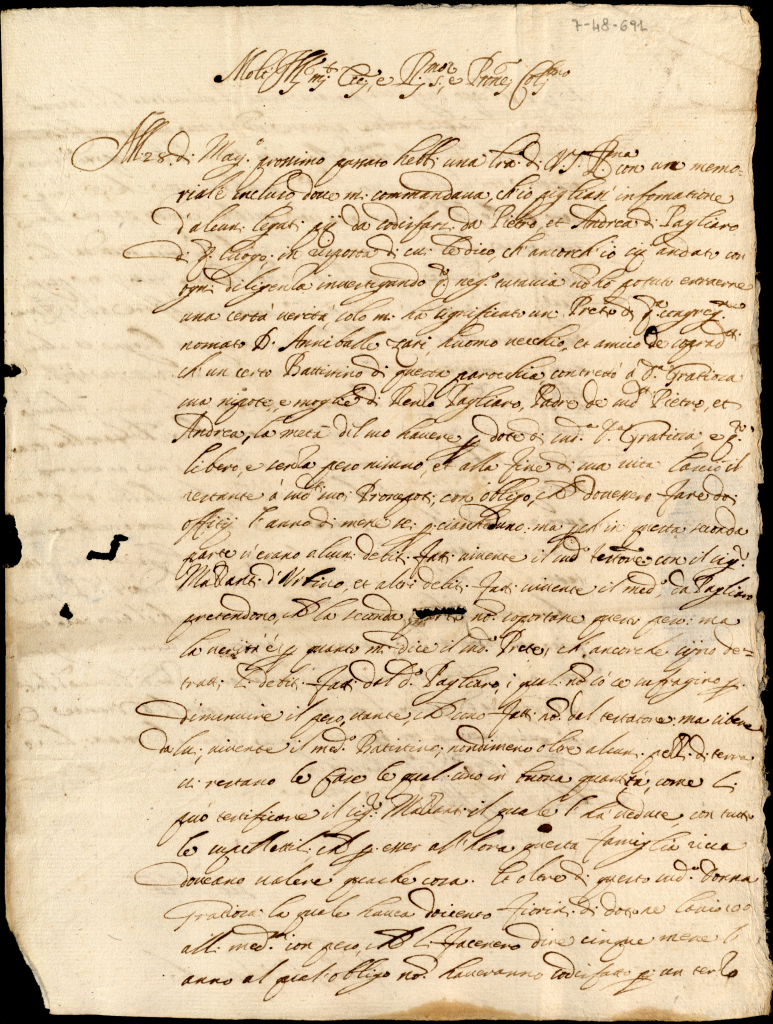 7-48-691
Molt' Ill.ri et R.mi Sig.ri e Pron.i Col.mi
All 28. di Mag.o prossimo passato hebbi una l'ra di V.S. R.ma con un memo=
riale incluso dove mi commandava, ch'io pigliasi informatione
d'alcuni legati pij da sodisfarsi da Pietro, et Andrea di Pagliaro
di q.o luogo; in risposta di cui le dico, ch'ancorch'io sij andato con
ogni diligenza investigando q.o neg.o tuttavia nō ho potuto cavarne
una certa verità solo m'ha significato un Prete di q.a congreg.ne
nomato D. Anniballe huomo vecchio, et amico de soprad.tti
ch'un certo Battistino di questa parochia contrasse à d.a Gratiosa
sua nipote, e moglie di Renzo Pagliaro, Padre de sud.ti Pietro, et
Andrea, la metà di suo havere p dote di sud.a d.a Gratiosa e q.o
libero, e senza peso nissuno, et alla fine di sua vita lasciò il
restante à sud.ti suoi Pronepoti, con obligo, ch dovessero fare doi
offitij l'anno di messe sei p ciascheduno: ma pch in questa seconda
parte v'erano alcuni debiti fatti vivente il sud.o testore con il sig.r
d'Urbino, et altri debiti fatti vivente il med.o da Pagliaro
pretendono, ch la seconda parte nō soportasse questo peso: ma
la verità è, p quanto mi dice il sud.o Prete, ch'ancorche sijno de=
tratti li debiti fatti dal d.o Pagliaro, i quali nō sò se suffragino p
diminuire il peso, stante, ch sono fatti nō dal testatore, ma
da lui, vivente il med.o Batistino; nondimeno oltre alcuni pezzi di terra
vi restano le Case le quali sono in buona quantità, come li
può testificare il sig.r il quale l'ha vedute, con tutte
le supellettili, ch p esser all'hora questa famiglia ricca
doveano valere qualche cosa. Et oltre di questo sud.a donna
Gratiosa la quale havea doicento fiorini di dote ne lasciò 100
alli med.i con peso, ch li facessero dire cinque messe l'
anno al qual'obligo nō haveranno sodisfatto p un terzo